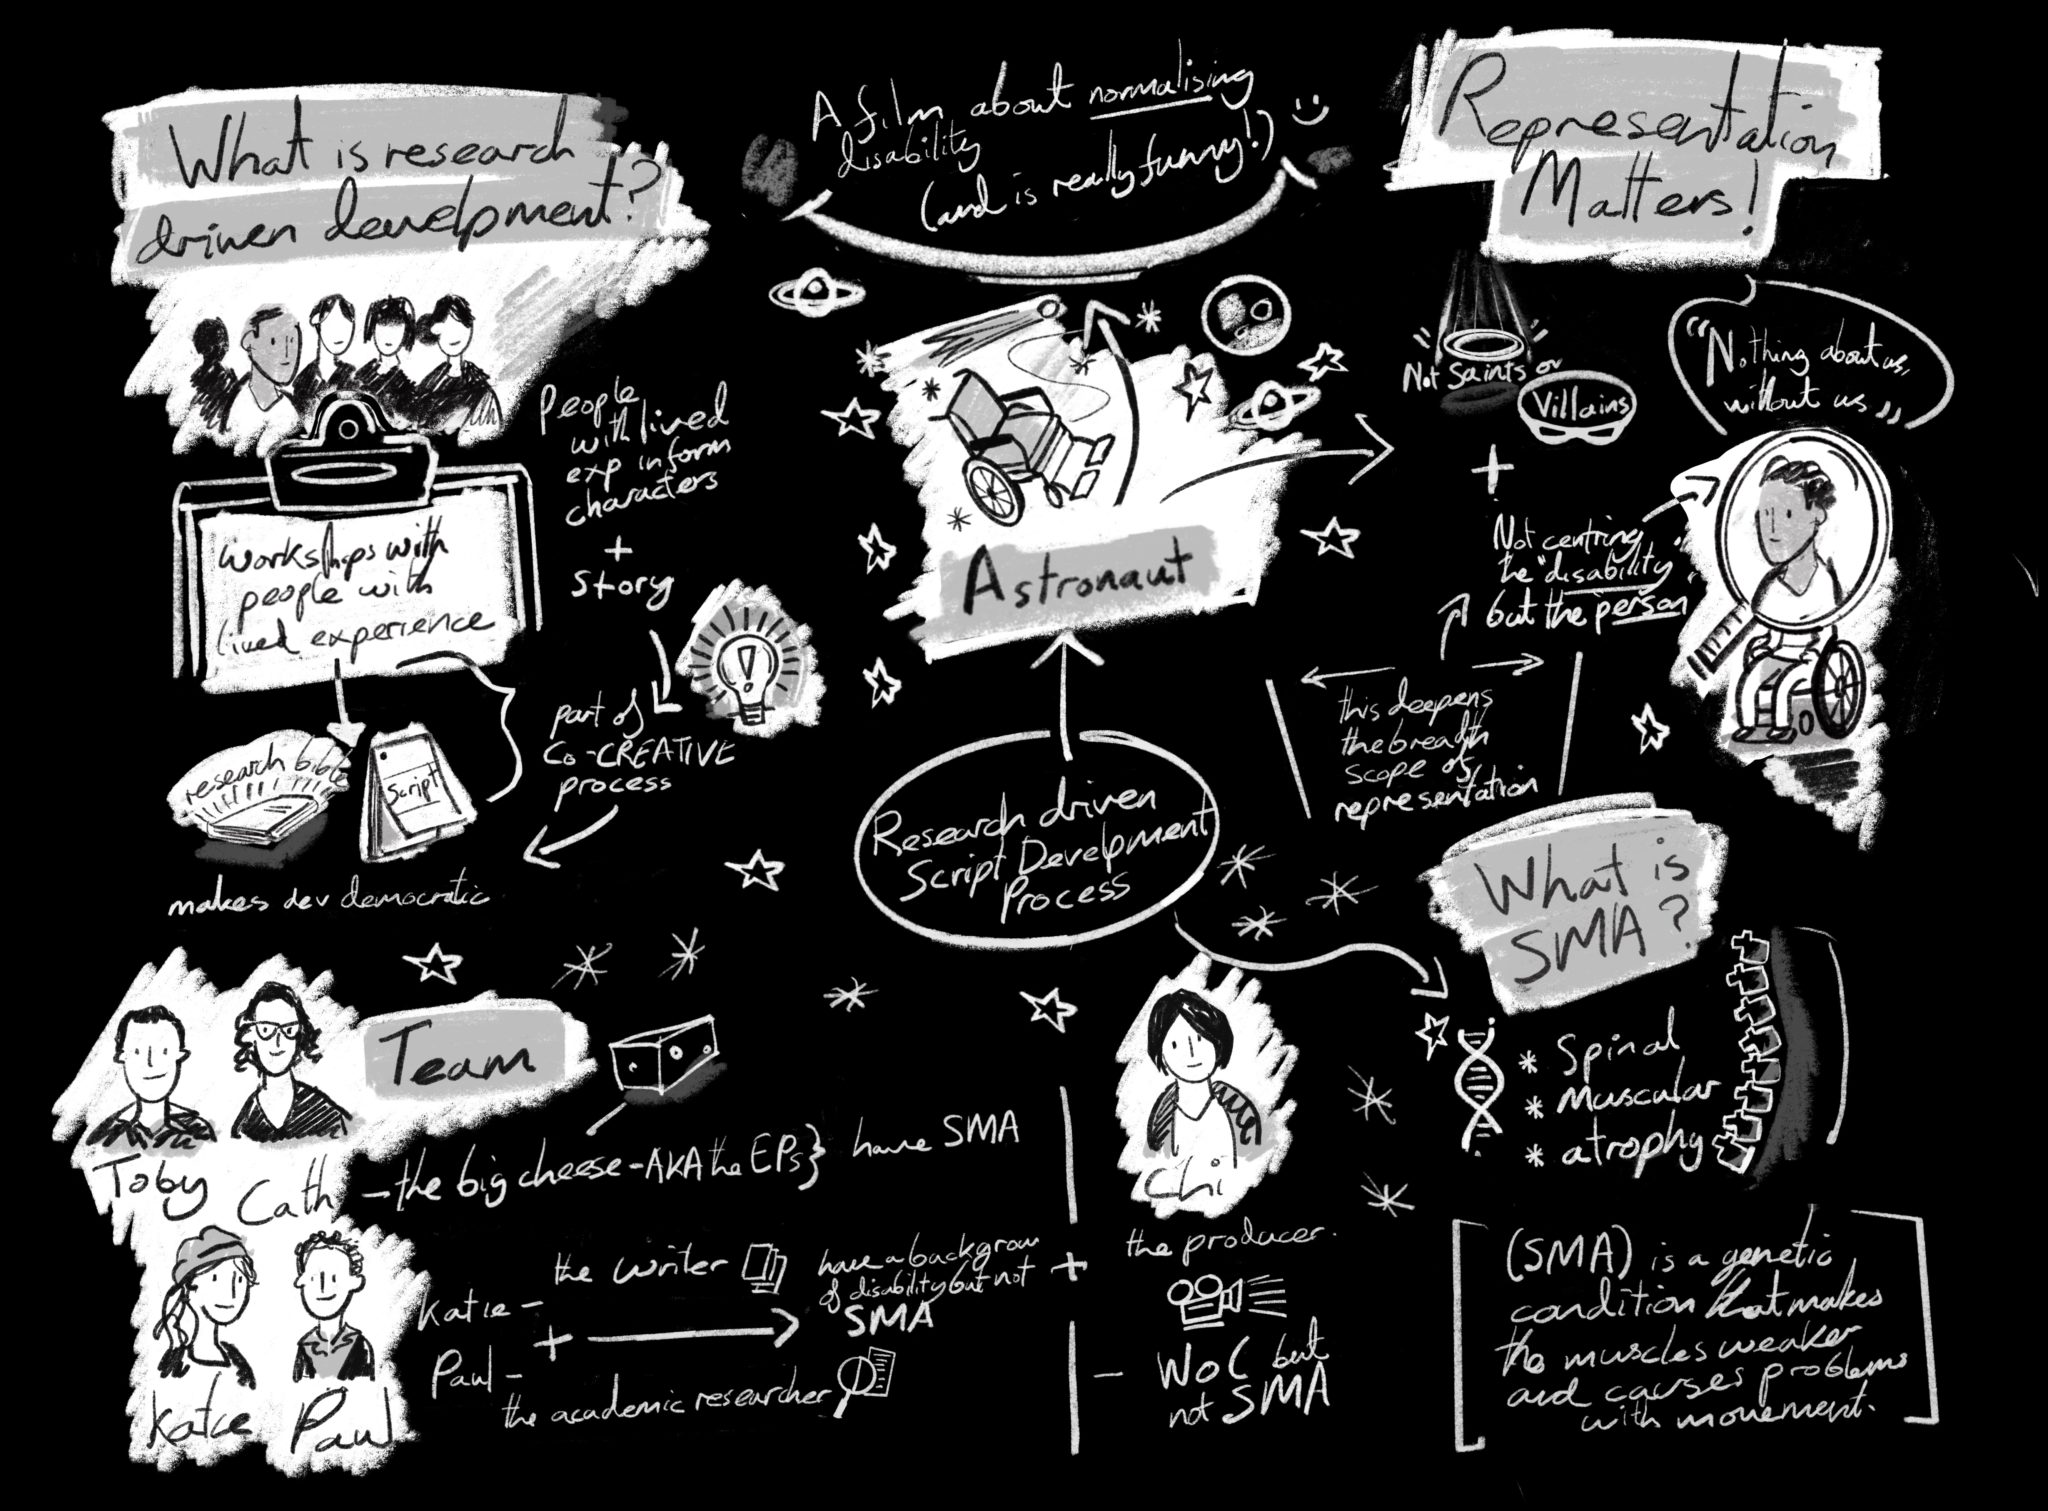 What is research
driven development?
People
with lived
exp inform
characters
+
Story
workshops with
people with
lived experience
research bible
Script
part of
CO-CREATIVE
process
makes dev democratic
A film about normalising
disability
(and is really funny!)
Astronaut
Research driven
Script Development
Process
Representation
Matters!
Not Saints or
Villains
"Nothing about us,
without us"
+
Not centring
the "disability"
but the person
this deepens
the breadth
scope of
representation
What is
SMA?
* Spinal
* Muscular
* atrophy
(SMA) is a genetic
condition that makes
the muscles weaker
and causes problems
with movement.
Team
Toby
Cath
- the big cheese - AKA the EPs} have SMA
Katie
Paul
Katie -
the writer
+
Paul -
the academic researcher
have a backgroun
of disability but not
SMA
+
Chi
the producer.
- WoC but
not SMA